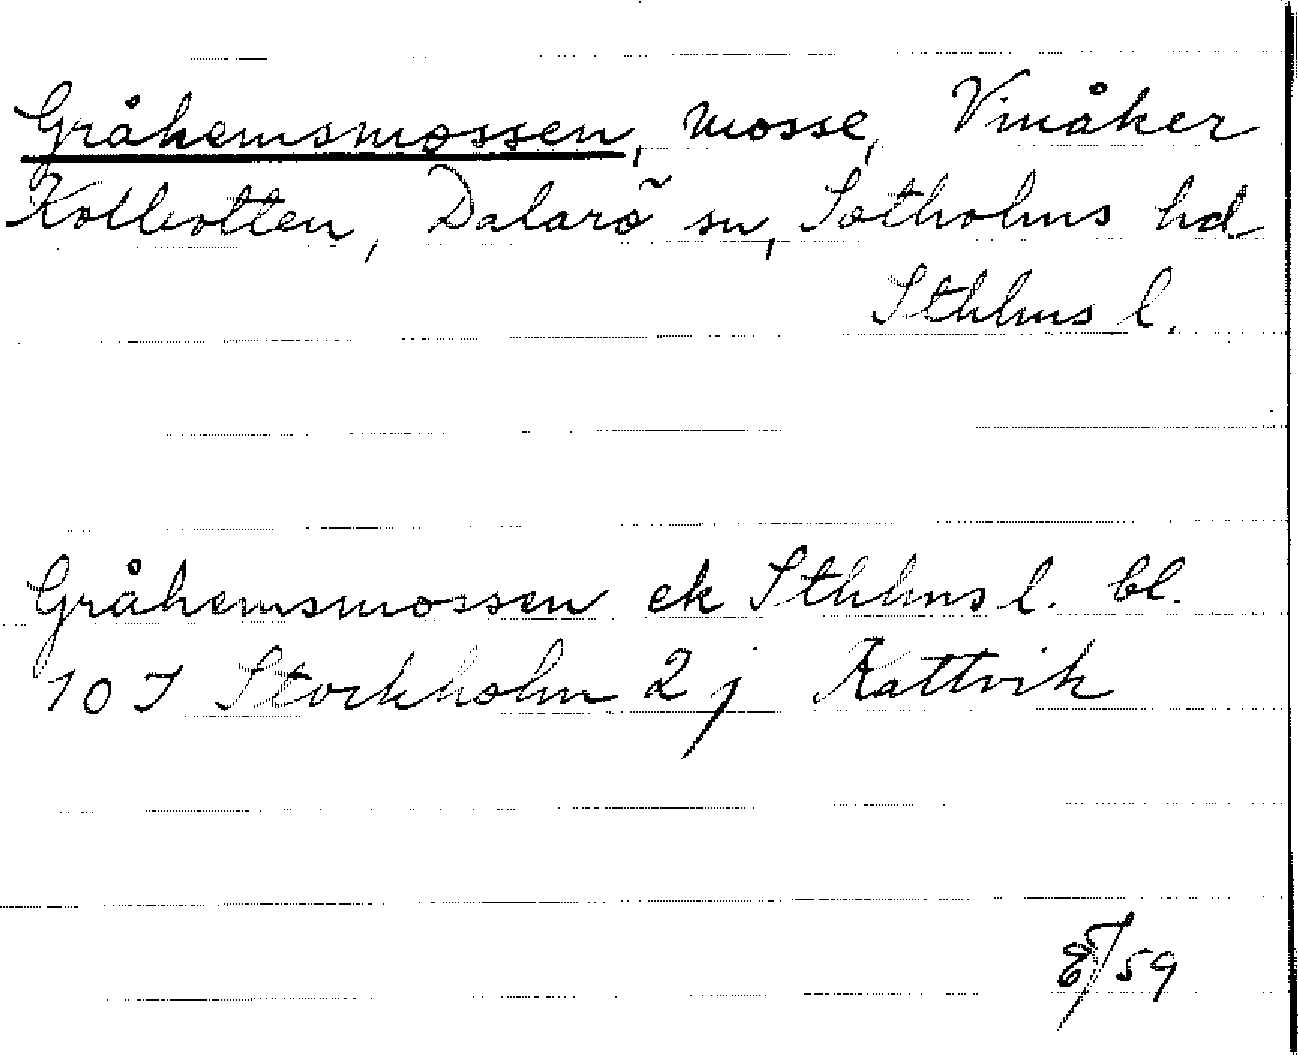 Gråhemsmossen, mosse, Vinåker
Kolbotten, Dalarö sn, Sotholms hd
Sthlms l.
Gråhemsmossen ek Sthlms l. bl.
10 I Stockholm 2 j Rattvik
/59